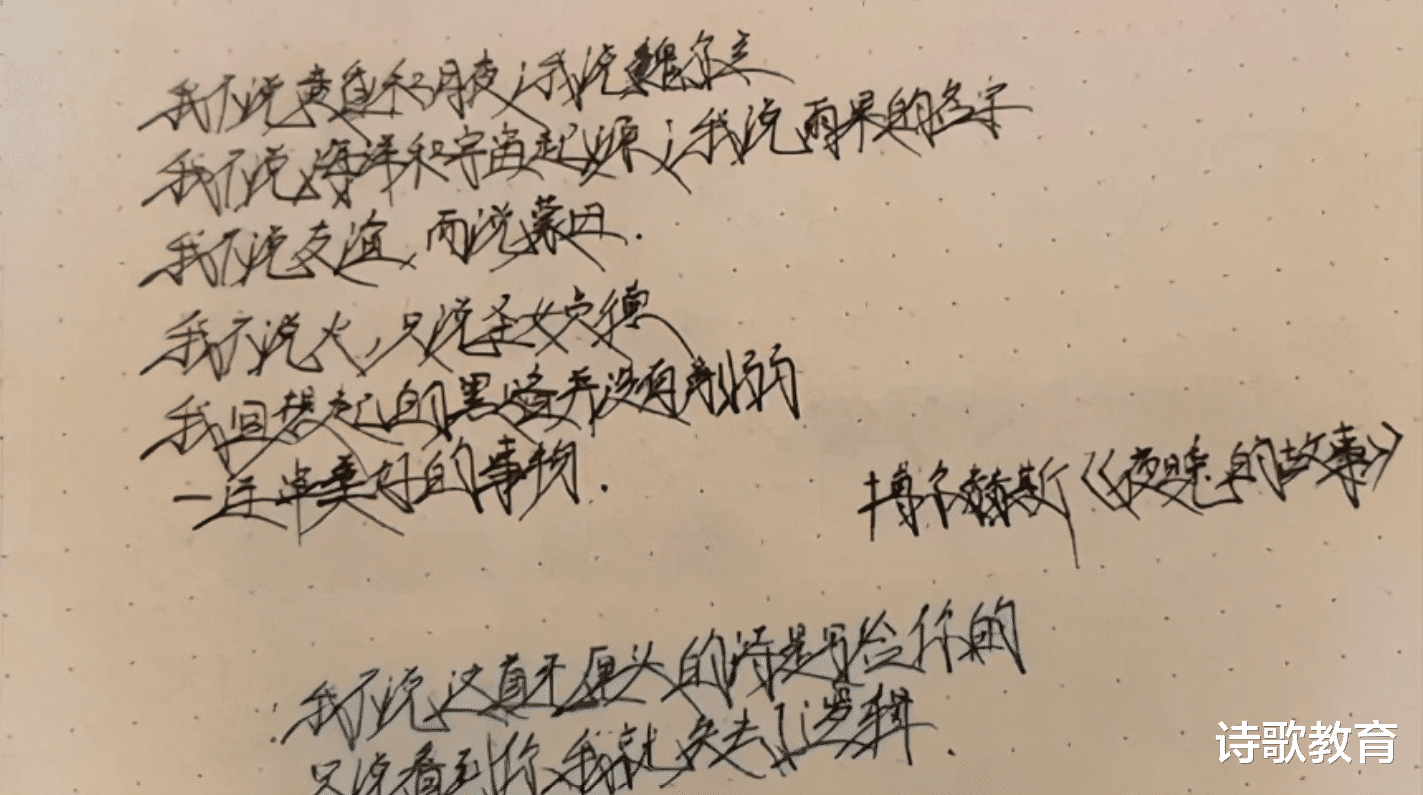 我不说黄昏和月夜；我说魏尔兰
我不说海洋和宇宙起源；我说雨果的名字
我不说友谊，而说蒙田．
我不说火，只说圣女贞德
我回想起的黑暗并没有削弱
一连串美好的事物．
博尔赫斯《夜晚的故事》
我不说这真无厘头的诗是写给你的
只说看到你，我就失去了逻辑．
诗歌教育